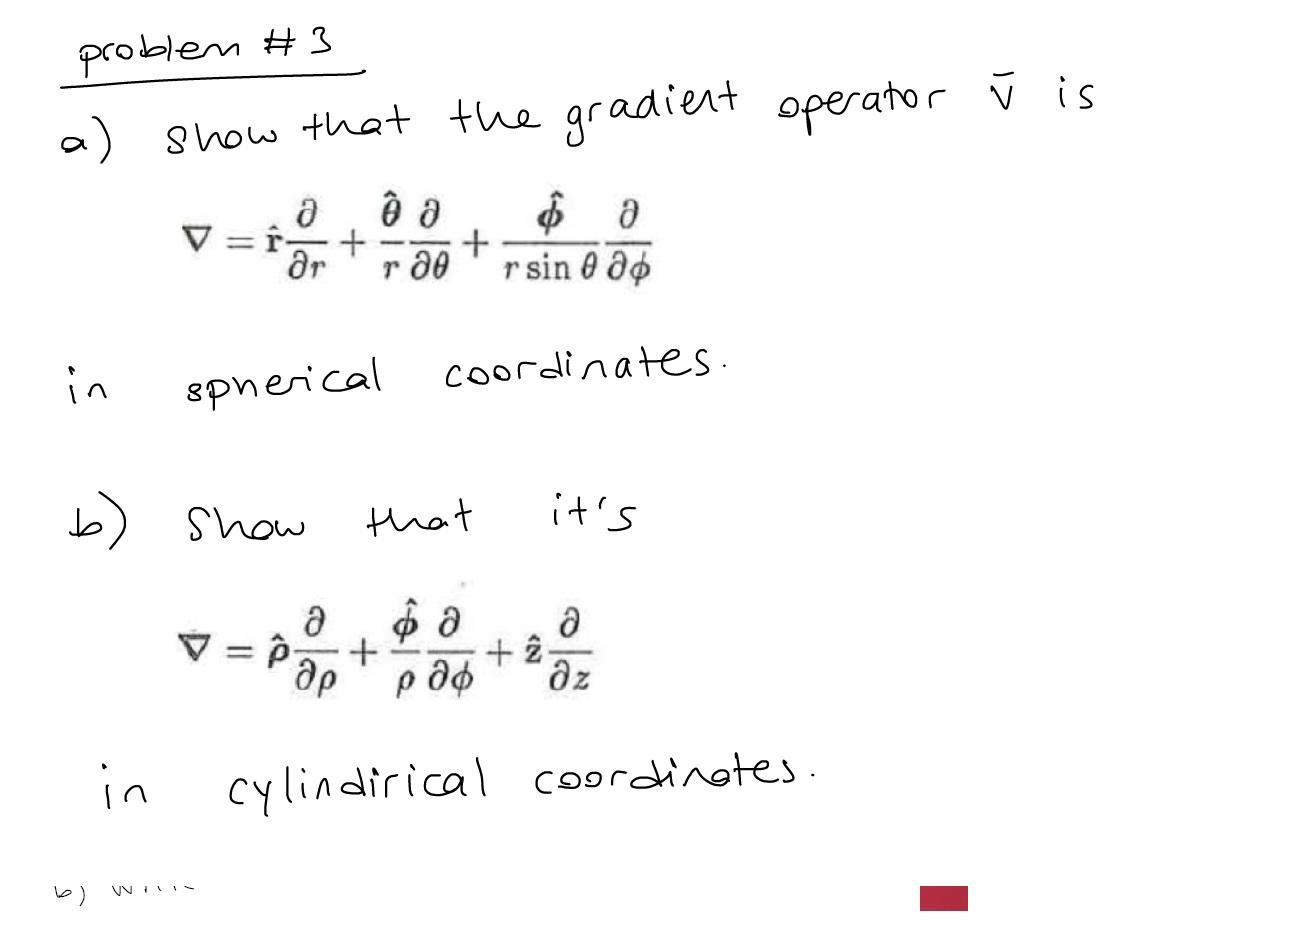 problem # 3
a) show that the gradient operator v̄ is
∇ = r̂ ∂/∂r + θ̂/r ∂/∂θ + ϕ̂/(r sin θ) ∂/∂ϕ
in spherical coordinates.
b) show that it's
∇ = ρ̂ ∂/∂ρ + ϕ̂/ρ ∂/∂ϕ + ẑ ∂/∂z
in cylindirical coordinates.
b)